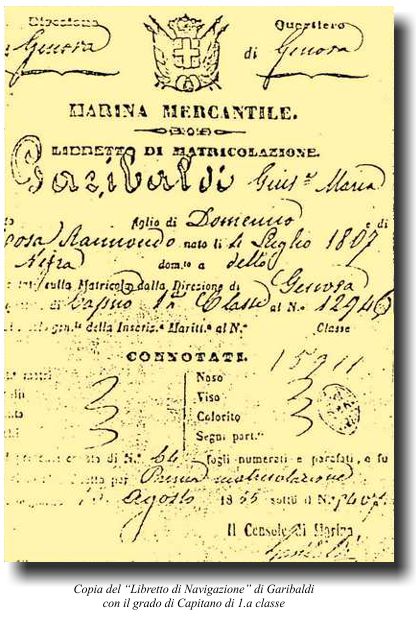 Direzione Quartiero
Genova di Genova
MARINA MERCANTILE.
LIBRETTO DI MATRICOLAZIONE.
Garibaldi Gius.e Maria
figlio di Domenico e di
Rosa Raimondo nato li 4 Luglio 1807
Nizza dom.to a detto
sulla Matricola dalla Direzione di Genova
di Capno 1.a Classe al N.° 12946
della Inscriz.e Maritt.a al N.° Classe
CONNOTATI. 15911
Naso
Viso
Colorito
Segni part.ri
di N.° 64 fogli numerati e parafati, e fu
per Prima matricolazione
Agosto 1855 sotto il N.°
Il Console di Marina,
Copia del “Libretto di Navigazione” di Garibaldi
con il grado di Capitano di 1.a classe